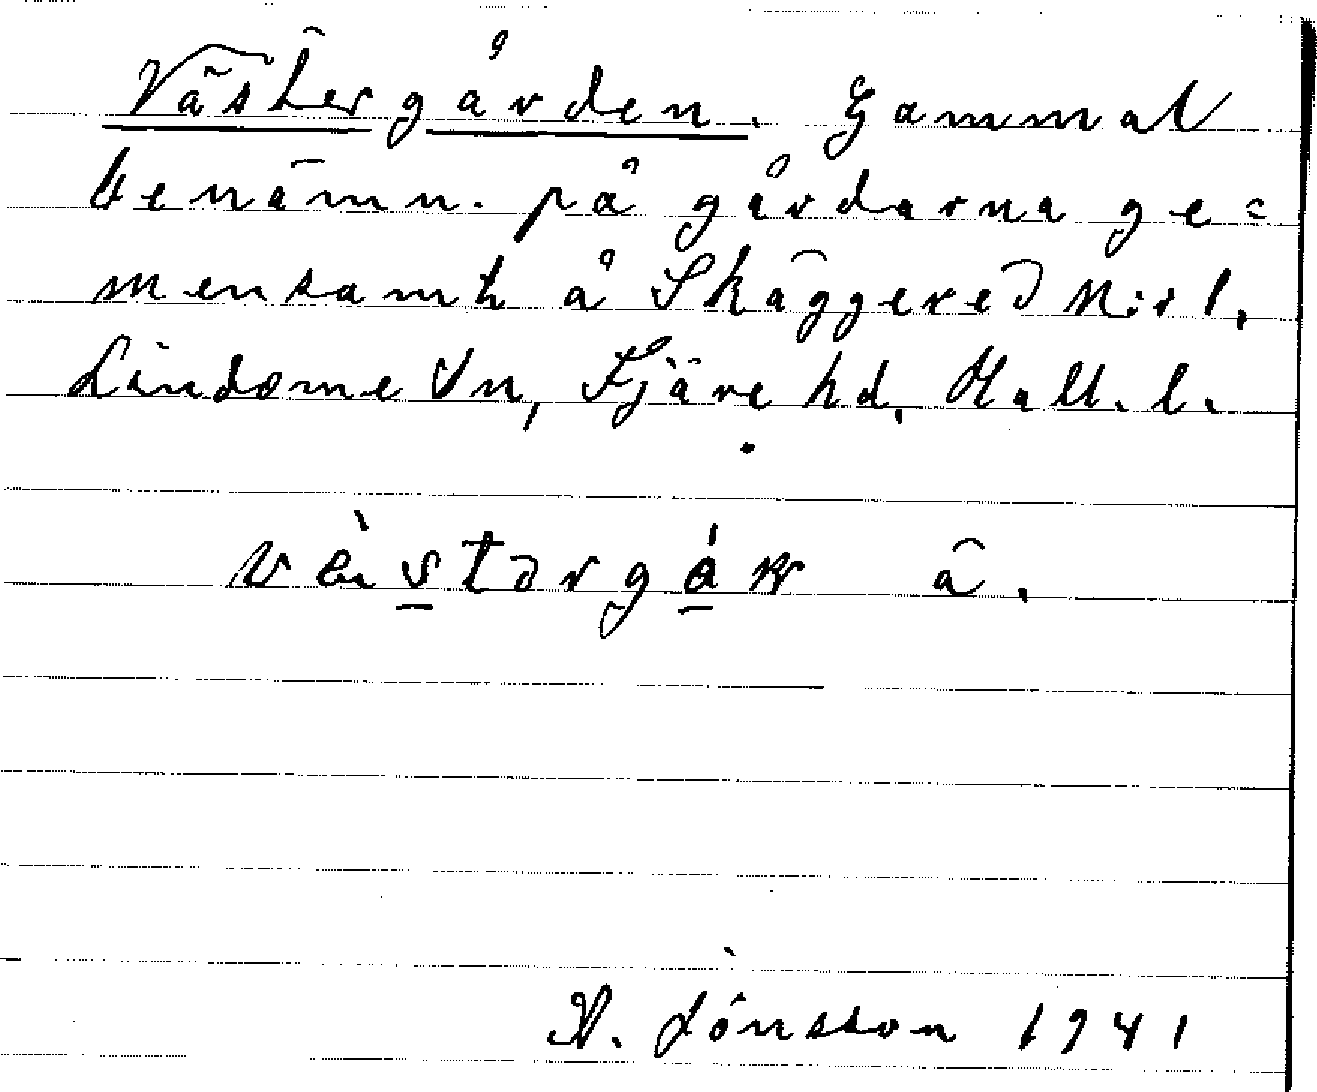 Västergården. Gammal
benämn. på gårdarna ge=
mensamt å Skäggered N:r 1,
Lindome Sn, Fjäre hd, Hall. l.
A. Jönsson 1941